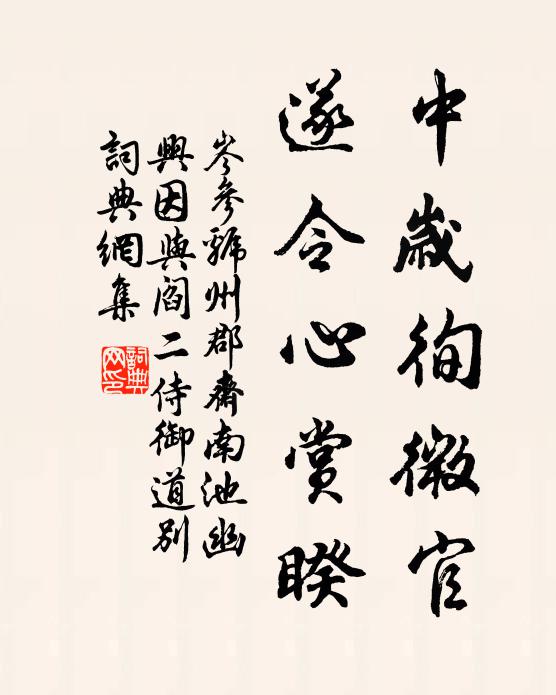 中歲徇微官
遂令心賞睽
岑參虢州郡齋南池幽
興因與閻二侍御道別
詞典網集
詞典網印